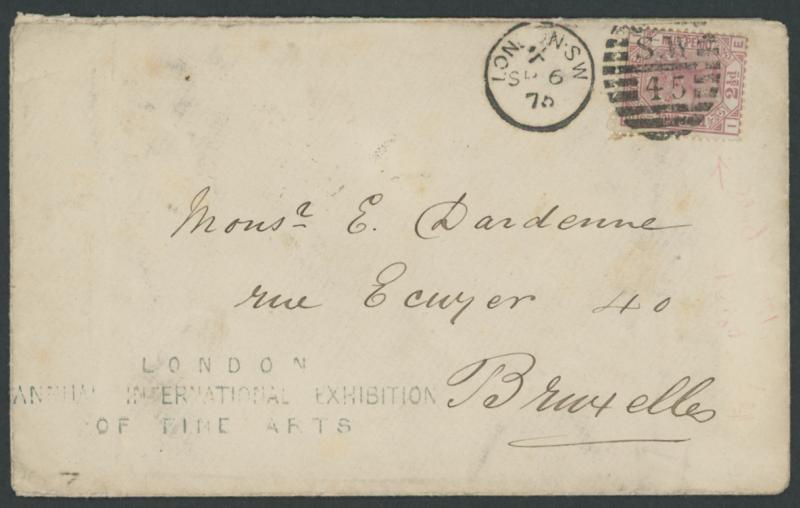 LONDON·S.W
X
SP 6
75
S.W
45
2½d
E
I
Monsr. E. Dardenne
rue Ecuyer 40
Bruxelles
LONDON
ANNUAL INTERNATIONAL EXHIBITION
OF FINE ARTS